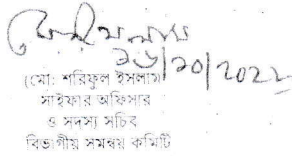 ১৬/১০/২০২২
(মো: শরিফুল ইসলাম)
সাইফার অফিসার
ও সদস্য সচিব
বিভাগীয় সমন্বয় কমিটি